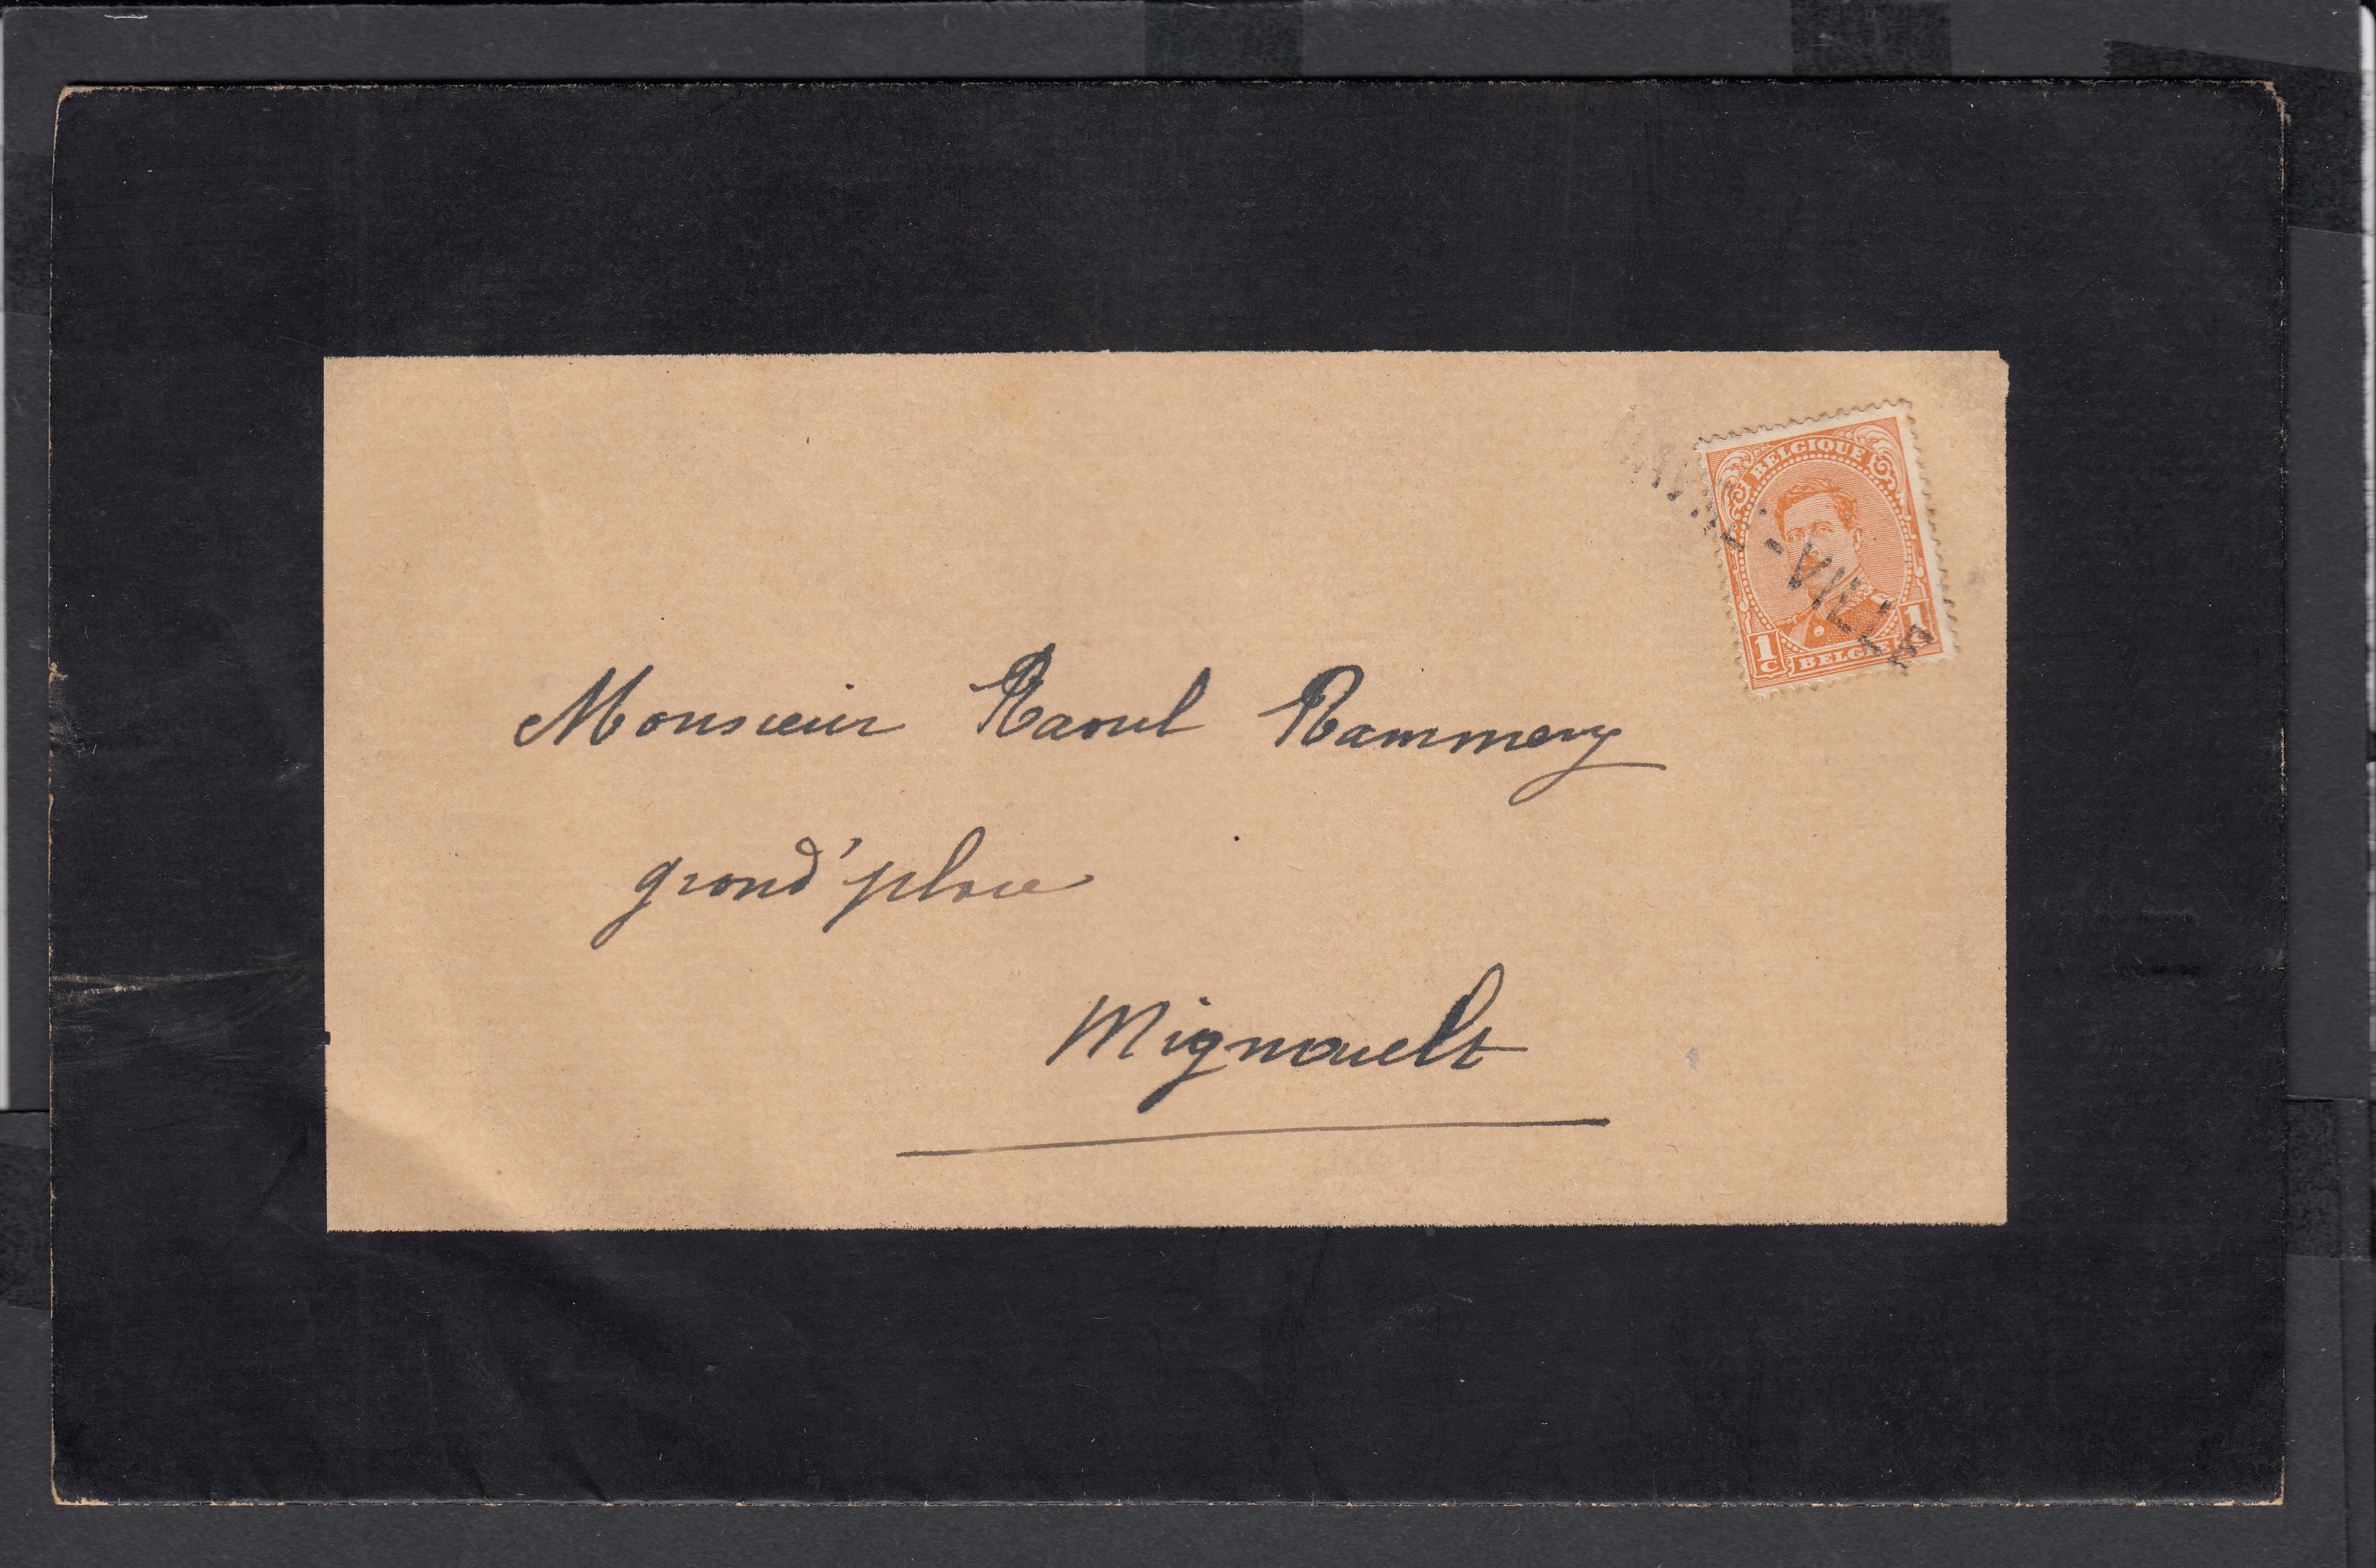 BELGIQUE
-VILLE
1C BELGIË 1
Monsieur Raoul Rammery
grand'place
Mignault